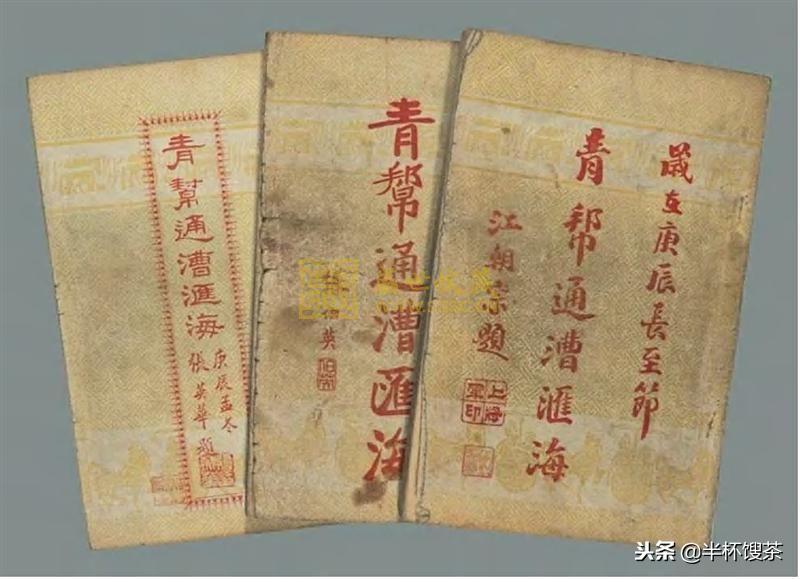 青幫通漕滙海
庚辰孟冬
張英華題
青幫通漕匯海
英
歲在庚辰長至節
青帮通漕滙海
江朝宗題
头条 @半杯馊茶